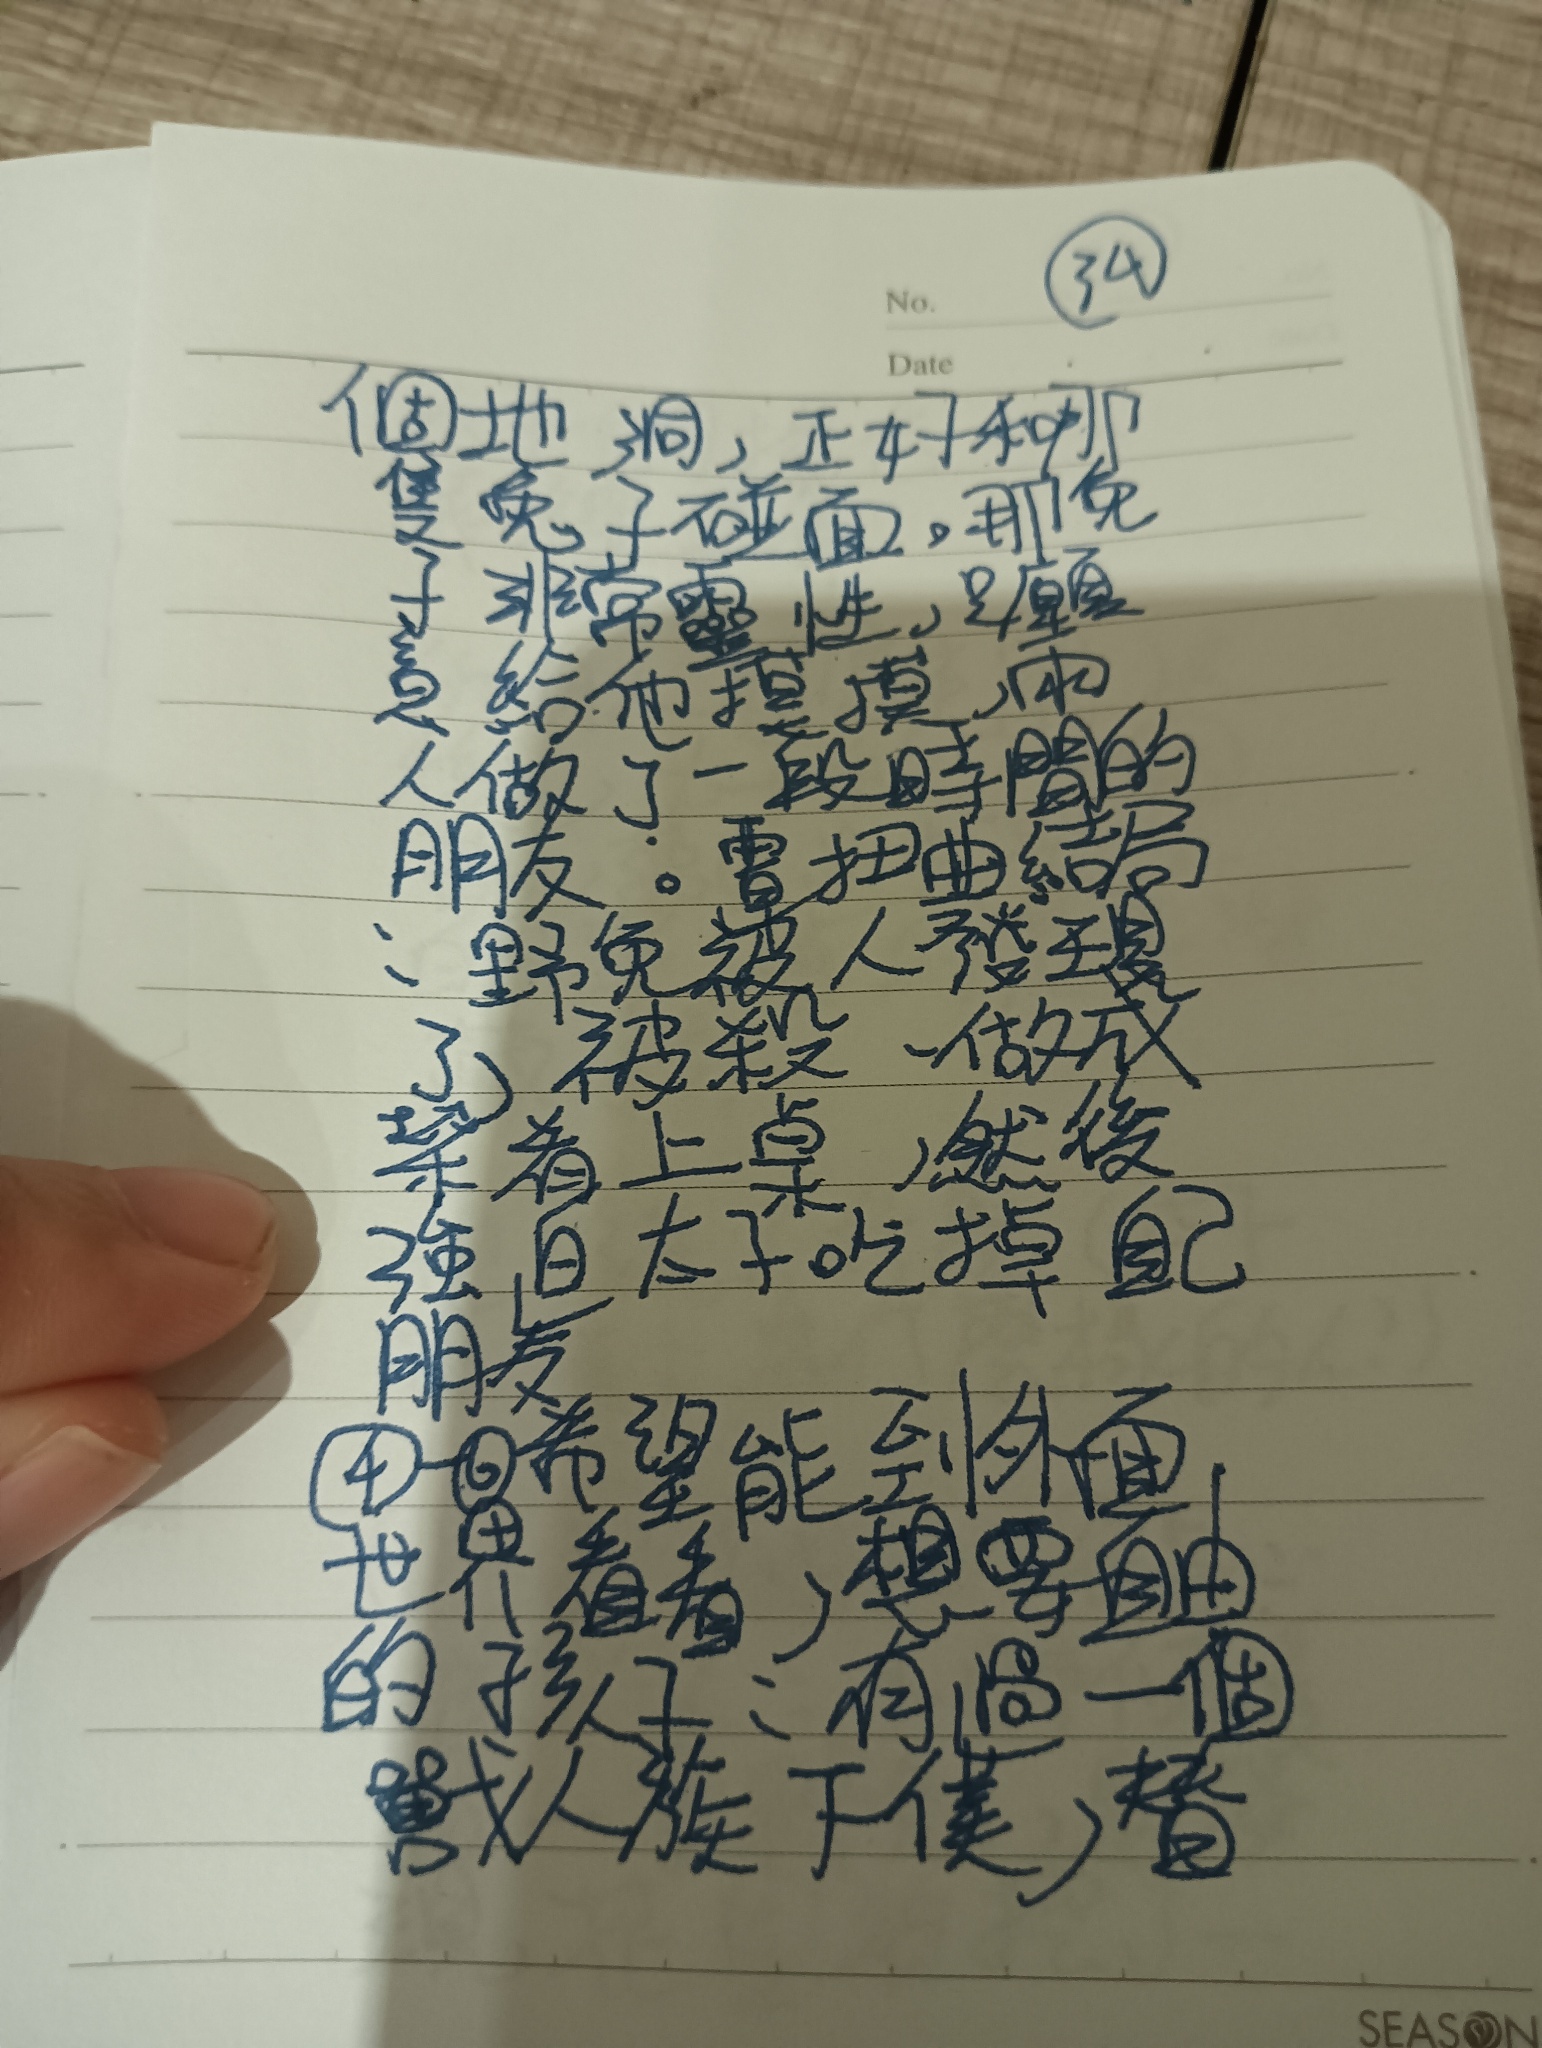 No. 34
Date
個地洞，正好和那
隻兔子碰面。那兔
子非常靈性，只願
意給他摸摸，兩
人做了一段時間的
朋友。扭曲結局
：野兔被人發現
了，被殺、做成
菜肴上桌，然後
強迫太子吃掉自己
朋友
④-⑥希望能到外面
世界看看，想要自由
的孩子：有過一個
獸人族下僕，替
SEASON